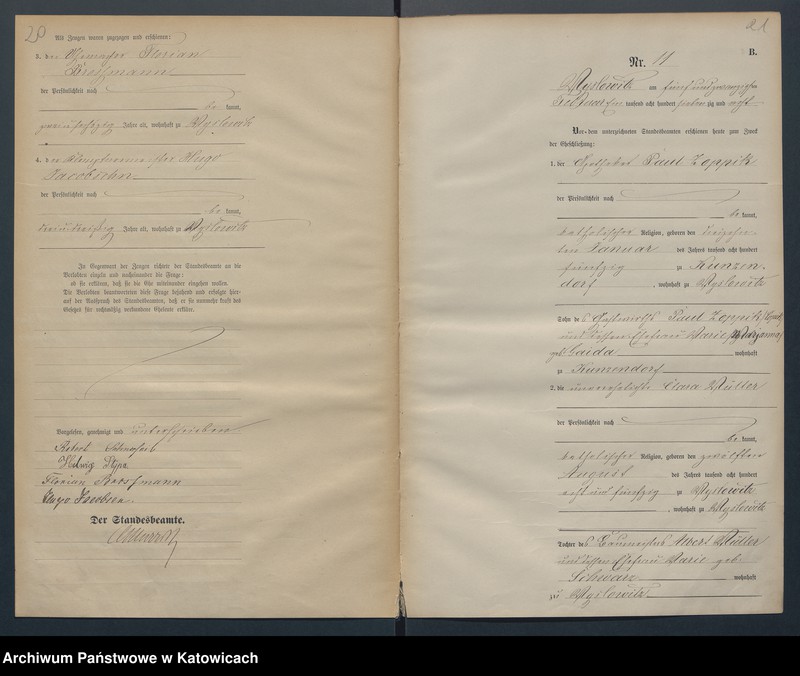 20
Als Zeugen waren zugezogen und erschienen:
3. der Florian
der Persönlichkeit nach
be kannt,
Jahre alt, wohnhaft zu Myslowitz
4. der Hugo
Jacobsen
der Persönlichkeit nach
be kannt,
Jahre alt, wohnhaft zu Myslowitz
In Gegenwart der Zeugen richtete der Standesbeamte an die
Verlobten einzeln und nacheinander die Frage:
ob sie erklären, daß sie die Ehe miteinander eingehen wollen.
Die Verlobten beantworteten diese Frage bejahend und erfolgte hier-
auf der Ausspruch des Standesbeamten, daß er sie nunmehr kraft des
Gesetzes für rechtmäßig verbundene Eheleute erkläre.
Vorgelesen, genehmigt und unterschrieben
Robert
Hedwig
Florian
Hugo Jacobsen
Der Standesbeamte.
21
B.
Nr. 11
Myslowitz am fünfundzwanzigsten
Februar tausend acht hundert sieben zig und acht
Vor dem unterzeichneten Standesbeamten erschienen heute zum Zweck
der Eheschließung:
1. der Paul Zoppik
der Persönlichkeit nach
be kannt,
katholischer Religion, geboren den dreizehn-
ten Januar des Jahres tausend acht hundert
fünfzig zu Kunzen-
dorf, wohnhaft zu Myslowitz
Sohn des Gastwirths Paul Zoppik
und dessen Ehefrau Marie
geb. Gaida wohnhaft
zu Kunzendorf
2. die unverehelichte Clara Müller
der Persönlichkeit nach
be kannt,
katholischer Religion, geboren den zwölften
August des Jahres tausend acht hundert
acht und fünfzig zu Myslowitz
, wohnhaft zu Myslowitz
Tochter des Albert Müller
und dessen Ehefrau Marie geb.
Schwarz wohnhaft
zu Myslowitz
Archiwum Państwowe w Katowicach